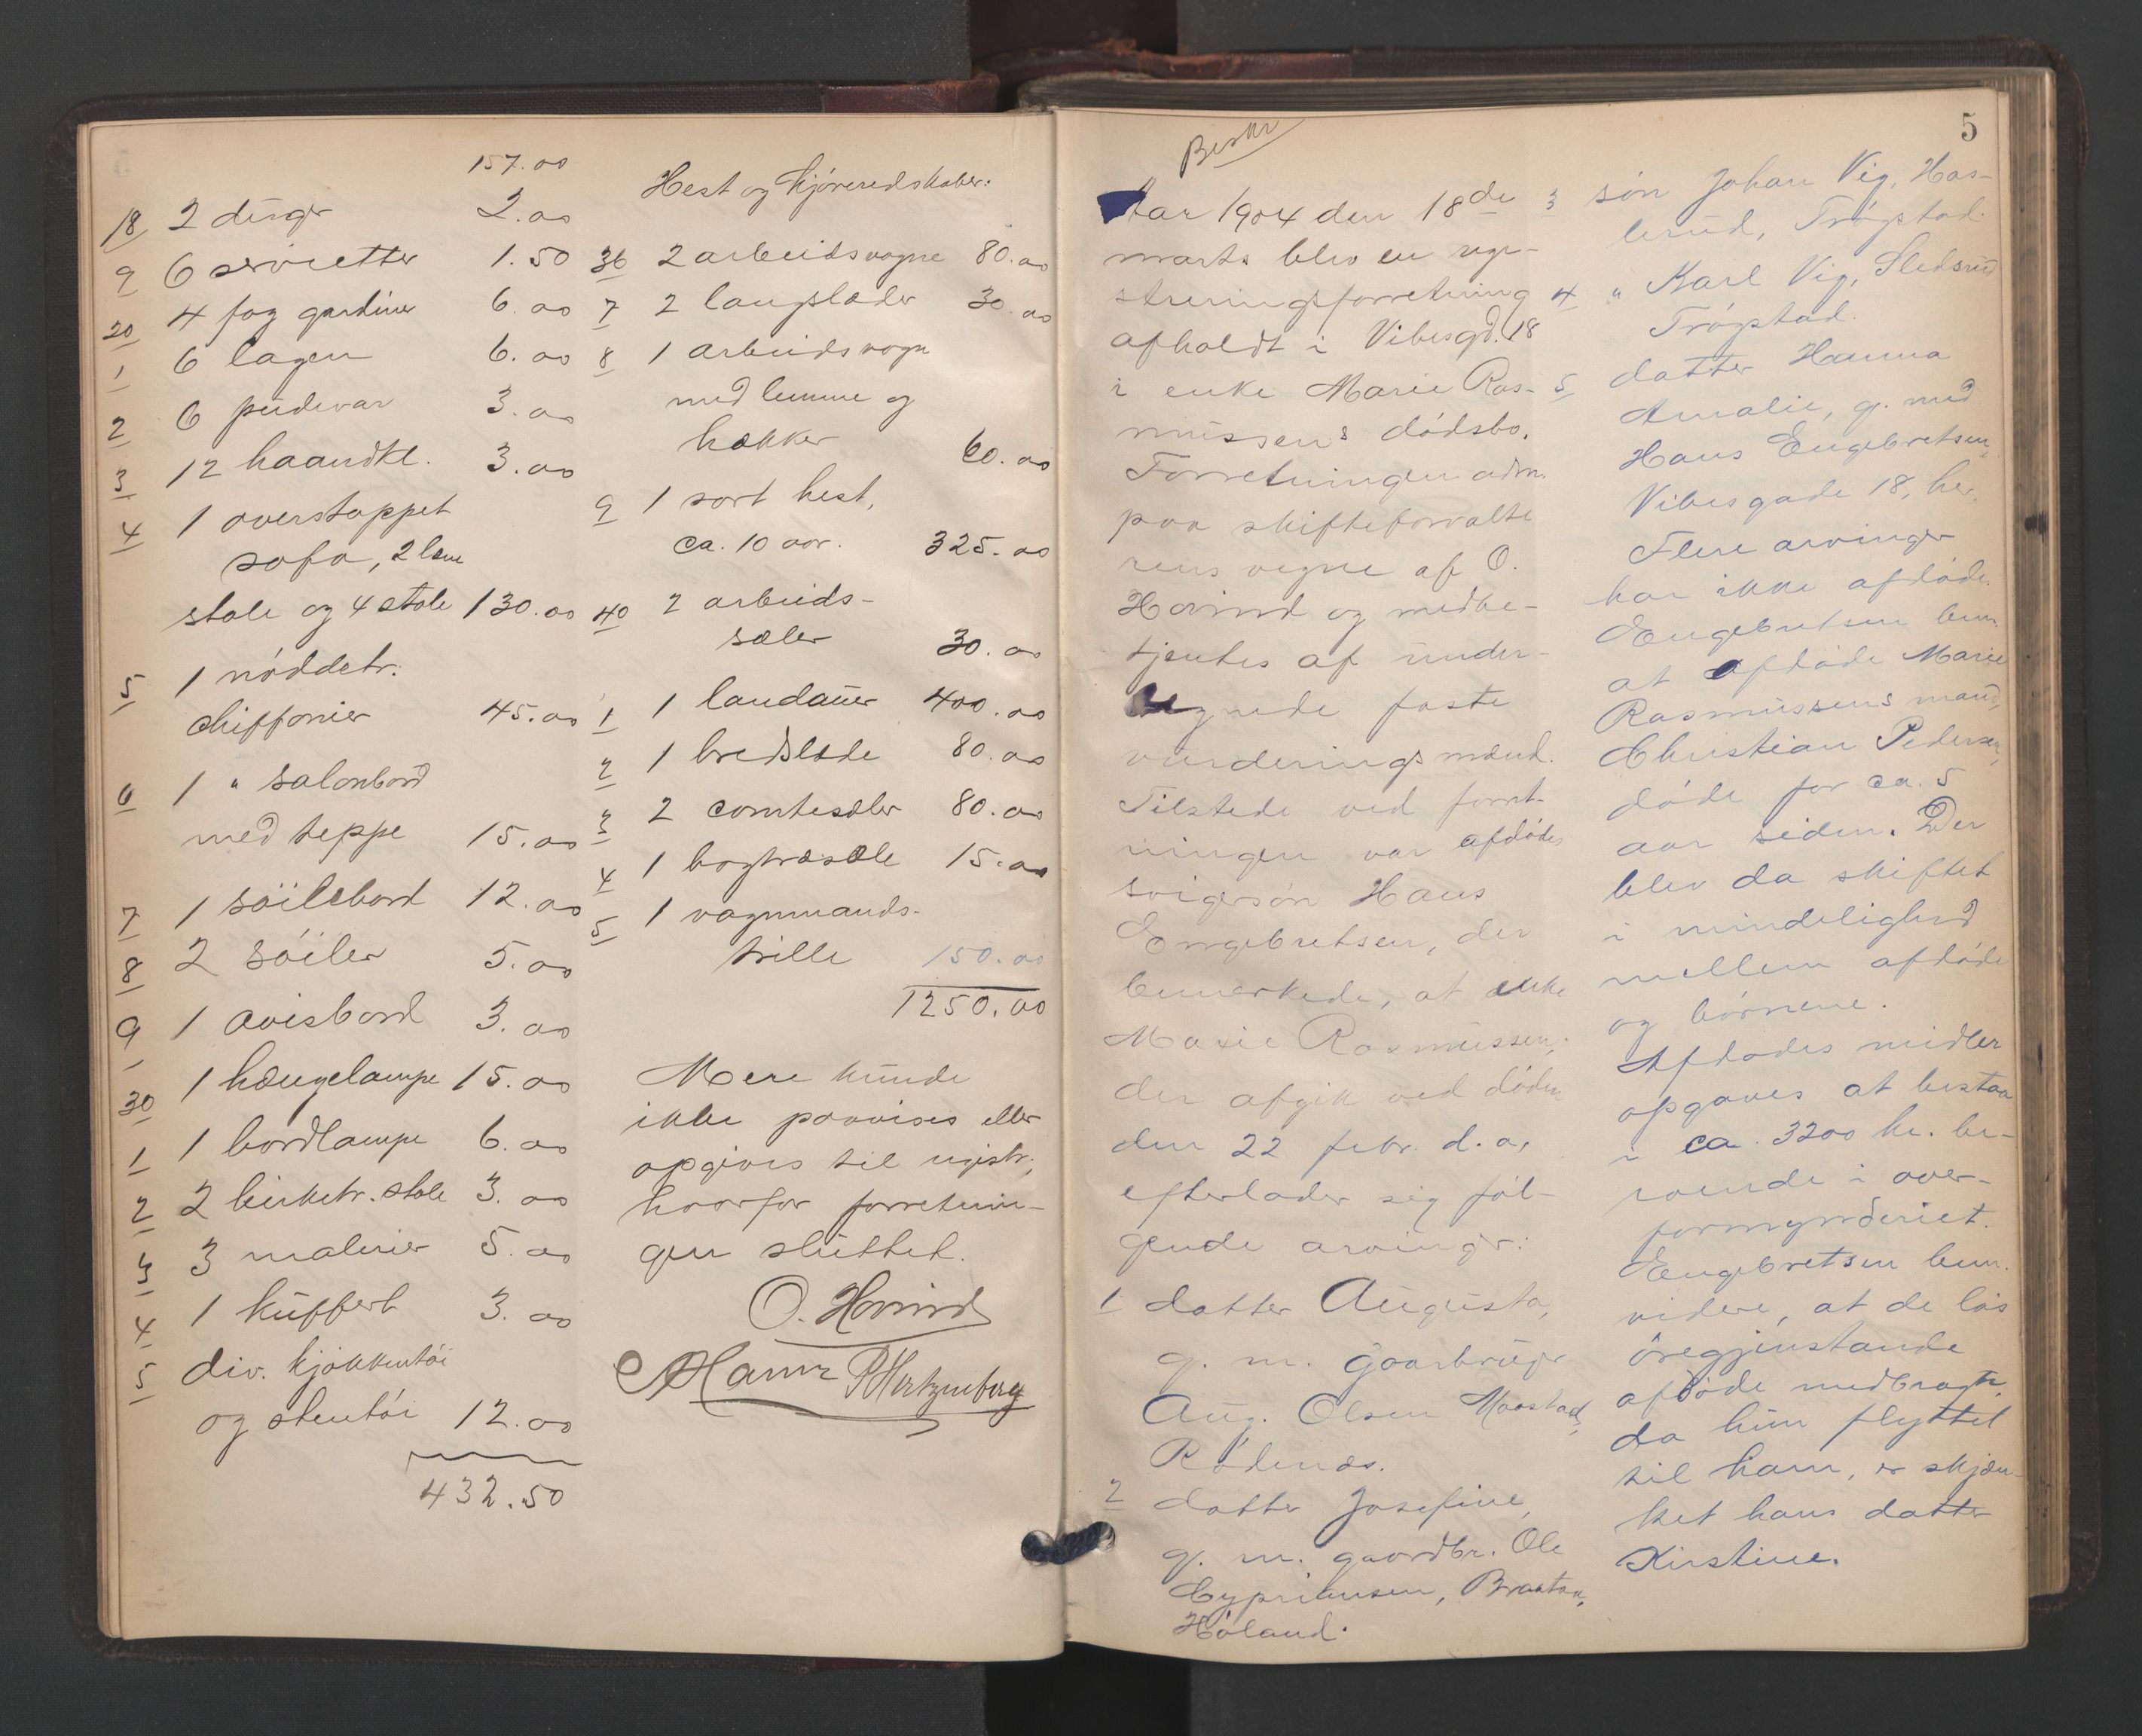 157.00
18 2 duger 2.00
9 6 servietter 1.50
20 4 fag gardiner 6.00
1 6 lagen 6.00
2 6 pudevar 3.00
3 12 haandkl. 3.00
4 1 overstoppet
sofa, 2 læne
stole og 4 stole 130.00
5 1 nöddetr.
chiffonier 45.00
6 1 " salonbord
med teppe 15.00
7 1 söilebord 12.00
8 2 söiler 5.00
9 1 avisbord 3.00
30 1 hængelampe 15.00
1 1 bordlampe 6.00
2 2 birketr. stole 3.00
3 3 malerier 5.00
4 1 kuffert 3.00
5 div. kjökkentöi
og stentöi 12.00
432.50
Hest og kjöreredskaber:
36 2 arbeidsvogne 80.00
7 2 langslæder 30.00
8 1 arbeidsvogn
med lemme og
hækker 60.00
9 1 sort hest,
ca. 10 aar. 325.00
40 2 arbeids-
sæler 30.00
1 1 landauer 400.00
2 1 bredslæde 80.00
3 2 comtesæler 80.00
4 1 bogtræsæle 15.00
5 1 vognmands-
trille 150.00
1250.00
Mere kunde
ikke paavises eller
opgives til registr.,
hvorfor forretnin-
gen sluttet.
O. Hovind
Hertzenberg
5
Beskr
Aar 1904 den 18de
marts blev en regi-
streringsforretning
afholdt i Vibesgd. 18
i enke Marie Ras-
mussens dödsbo.
Forretningen adm.
paa skifteforvalte
rens vegne af O.
Hovind og medbe-
tjentes af under-
tegnede faste
vurderingsmænd.
Tilstede ved forret-
ningen var afdödes
svigersön Hans
Engebretsen, der
bemerkede, at enke
Marie Rasmussen,
der afgik ved döden
den 22 febr. d.a.
efterlader sig föl-
gende arvinger:
1 datter Augusta,
g. m. gaarbruger
Aug. Olsen Maastad,
Rödenæs.
2 datter Josefine,
g. m. gaardbr. Ole
Cypriansen, Braatan,
Höland.
3 sön Johan Vig, Has-
lerud, Trögstad.
4 " Karl Vig, Sledsrud
Trögstad.
5 datter Hanna
Amalie, g. med
Hans Engebretsen,
Vibesgade 18, her.
Flere arvinger
har ikke afdöde.
Engebretsen bem.
at afdöde Marie
Rasmussens mand,
Christian Pedersen,
döde for ca. 5
aar siden. Der
blev da skiftet
i mindelighed
mellem afdöde
og börnene.
Afdödes midler
opgaves at bestaa
i ca. 3200 kr. be-
roende i over-
formynderiet.
Engebretsen bem.
videre, at de lös
öregjenstande
afdöde medbragte,
da hun flyttet
til ham, er skjæn-
ket hans datter
Kirstine.